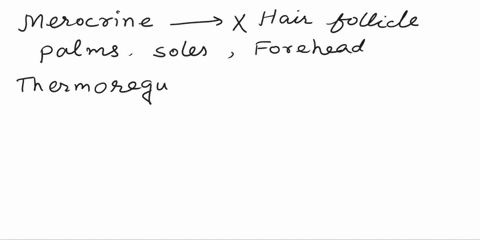 Merocrine → X Hair follicle
palms. soles, Forehead
Thermoregu